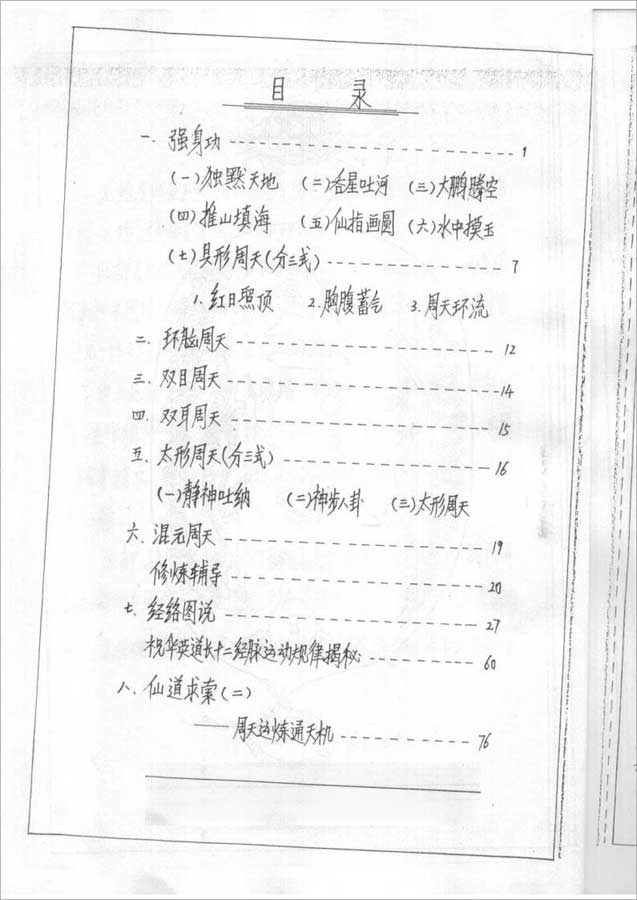 目 录
一、强身功 ------------------ 1
(一)独默天地 (二)吞星吐河 (三)大鹏腾空
(四)推山填海 (五)仙指画圆 (六)水中摸玉
(七)具形周天(分三式) ------------ 7
1.红日照顶 2.胸腹蓄气 3.周天环流
二、环脑周天 ------------------ 12
三.双目周天 ------------------ 14
四.双耳周天 ------------------ 15
五.太形周天(分三式) -------------- 16
(一)静神吐纳 (二)神步八卦 (三)太形周天
六、混元周天 ------------------ 19
修炼辅导 ------------------ 20
七.经络图说 ------------------ 27
祝华英道长十二经脉运动规律揭秘 ------ 60
八、仙道求索(二)
——周天运炼通天机 ---------- 76